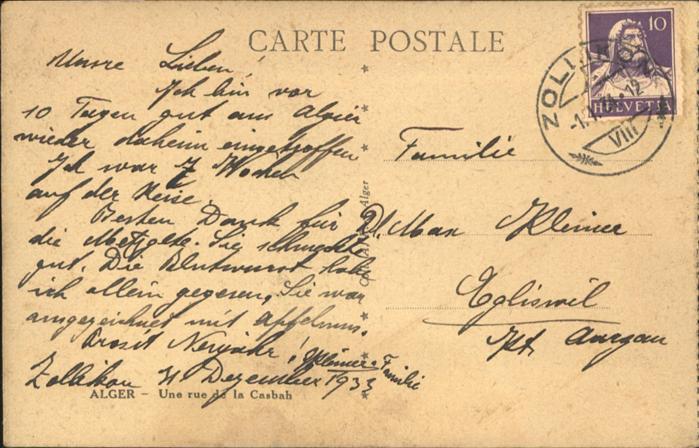 CARTE POSTALE
Unsre Lieben!
Ich bin vor
10 Tagen gut aus Algier
wieder daheim eingetroffen
Ich war 7 Wochen
auf der Reise.
Besten Dank für
die Metzgete. Sie schmeckte
gut. Die Blutwurst habe
ich allein gegessen, Sie war
ausgezeichnet mit Apfelmus.
Prosit Neujahr! Kleiner-Familie
Zollikon 31 Dezember 1933
ALGER - Une rue de la Casbah
Alger
10
HELVETIA
ZOLLIKON
VIII
Familie
Dr. Max Kleiner
Egliswil
Kt. Aargau